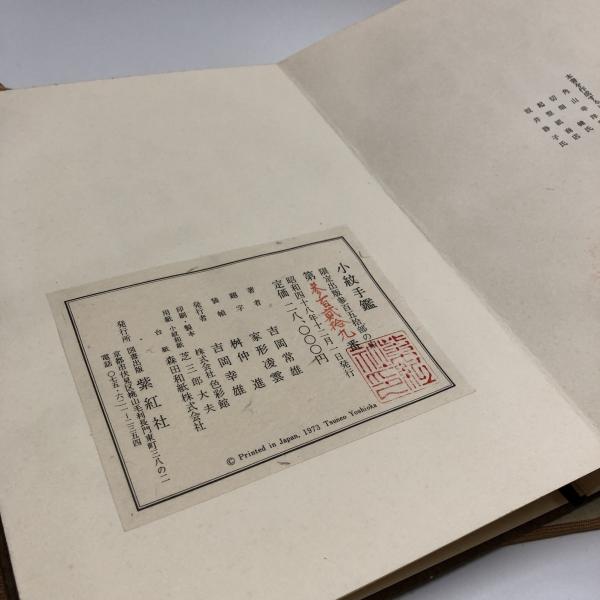 小紋手鑑
限定出版参百五拾部の
第参百貳拾九番
昭和四十八年十二月一日発行
定価 二八、〇〇〇円
著者 吉岡常雄
題字 家形凌雲
装幀 桝仲 進
発行者 吉岡幸雄
印刷・製本 株式会社色彩館
用紙 小紋和紙 芝三郎大夫
台紙 森田和紙株式会社
発行所 図書出版 紫紅社
京都市伏見区桃山毛利長門東町三八の二
電話 〇七五・六二一-二三五四
© Printed in Japan, 1973 Tsuneo Yoshioka